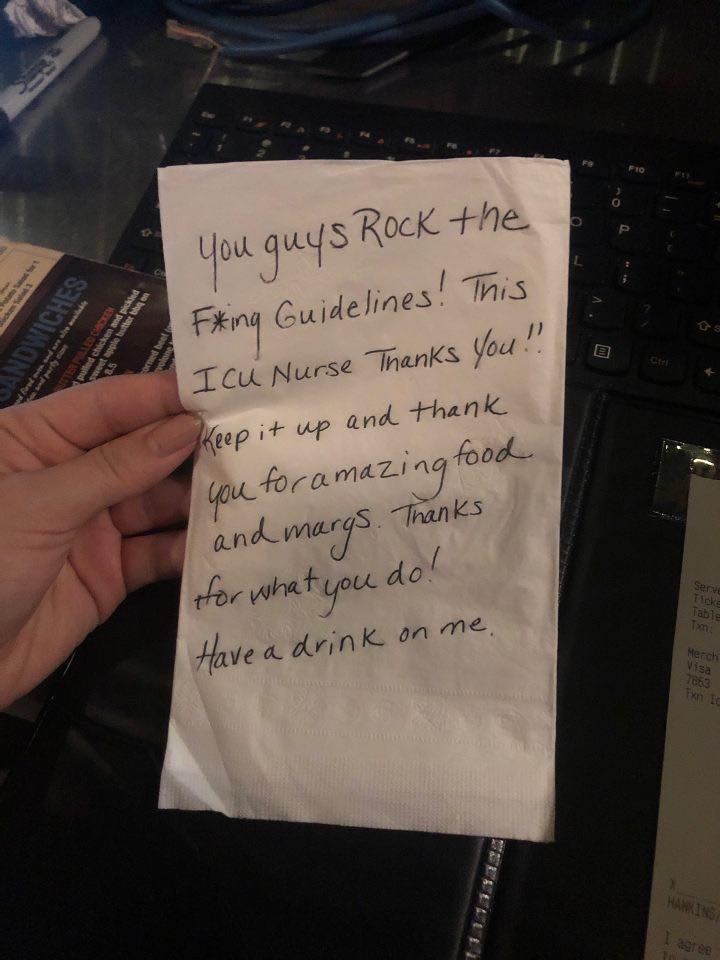 You guys Rock the
F*ing Guidelines! This
ICU Nurse Thanks You!!
Keep it up and thank
you for amazing food
and margs. Thanks
for what you do!
Have a drink on me.
SANDWICHES
F9
F10
F11
P
L
Ctrl
Serve
Ticke
Table
Txn:
Merch
Visa
7863
Txn I
X
HAWKINS/
I agree